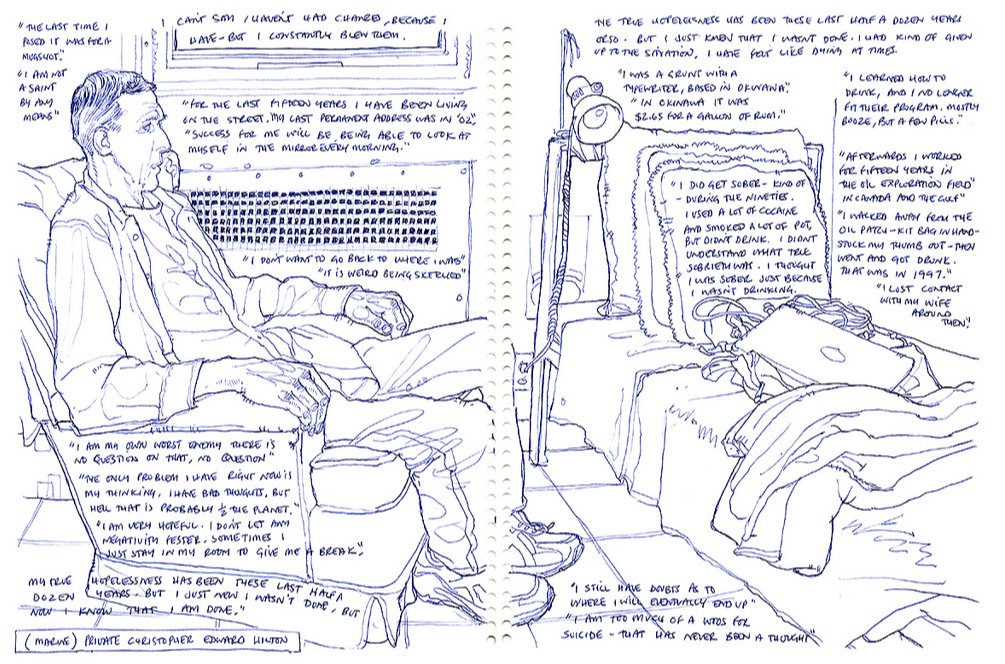 "THE LAST TIME I
POSED IT WAS FOR A
MUGSHOT."
"I AM NOT
A SAINT
BY ANY
MEANS"
I CAN'T SAY I HAVEN'T HAD CHANCES, BECAUSE I
HAVE - BUT I CONSTANTLY BLEW THEM.
"FOR THE LAST FIFTEEN YEARS I HAVE BEEN LIVING
ON THE STREET. MY LAST PERMANENT ADDRESS WAS IN '02."
"SUCCESS FOR ME WILL BE BEING ABLE TO LOOK AT
MYSELF IN THE MIRROR EVERY MORNING."
"I DON'T WANT TO GO BACK TO WHERE I WAS"
"IT IS WEIRD BEING SKETCHED"
"I AM MY OWN WORST ENEMY THERE IS
NO QUESTION ON THAT, NO QUESTION"
"THE ONLY PROBLEM I HAVE RIGHT NOW IS
MY THINKING. I HAVE BAD THOUGHTS, BUT
HELL THAT IS PROBABLY ½ THE PLANET."
"I AM VERY HOPEFUL. I DON'T LET ANY
NEGATIVITY FESTER. SOMETIMES I
JUST STAY IN MY ROOM TO GIVE ME A BREAK."
MY TRUE HOPELESSNESS HAS BEEN THESE LAST HALF A
DOZEN YEARS. BUT I JUST NEW I WASN'T DONE, BUT
NOW I KNOW THAT I AM DONE."
(MARINE) PRIVATE CHRISTOPHER EDWARD HILTON
THE TRUE HOPELESSNESS HAS BEEN THESE LAST HALF A DOZEN YEARS
OR SO. BUT I JUST KNEW THAT I WASN'T DONE. I HAD KIND OF GIVEN
UP TO THE SITUATION, I HAVE FELT LIKE DYING AT TIMES.
"I WAS A GRUNT WITH A
TYPEWRITER, BASED IN OKINAWA."
"IN OKINAWA IT WAS
$2.65 FOR A GALLON OF RUM."
"I LEARNED HOW TO
DRINK, AND I NO LONGER
FIT THEIR PROGRAM. MOSTLY
BOOZE, BUT A FEW PILLS."
"I DID GET SOBER - KIND OF
- DURING THE NINETIES.
I USED A LOT OF COCAINE
AND SMOKED A LOT OF POT,
BUT DIDN'T DRINK. I DIDN'T
UNDERSTAND WHAT TRUE
SOBRIETY WAS. I THOUGHT
I WAS SOBER JUST BECAUSE
I WASN'T DRINKING.
"AFTERWARDS I WORKED
FOR FIFTEEN YEARS IN
THE OIL EXPLORATION FIELD"
IN CANADA AND THE GULF"
"I WALKED AWAY FROM THE
OIL PATCH - KIT BAG IN HAND -
STUCK MY THUMB OUT - THEN
WENT AND GOT DRUNK.
THAT WAS IN 1997."
"I LOST CONTACT
WITH MY WIFE
AROUND
THEN."
"I STILL HAVE DOUBTS AS TO
WHERE I WILL EVENTUALLY END UP"
"I AM TOO MUCH OF A WUSS FOR
SUICIDE - THAT HAS NEVER BEEN A THOUGHT"